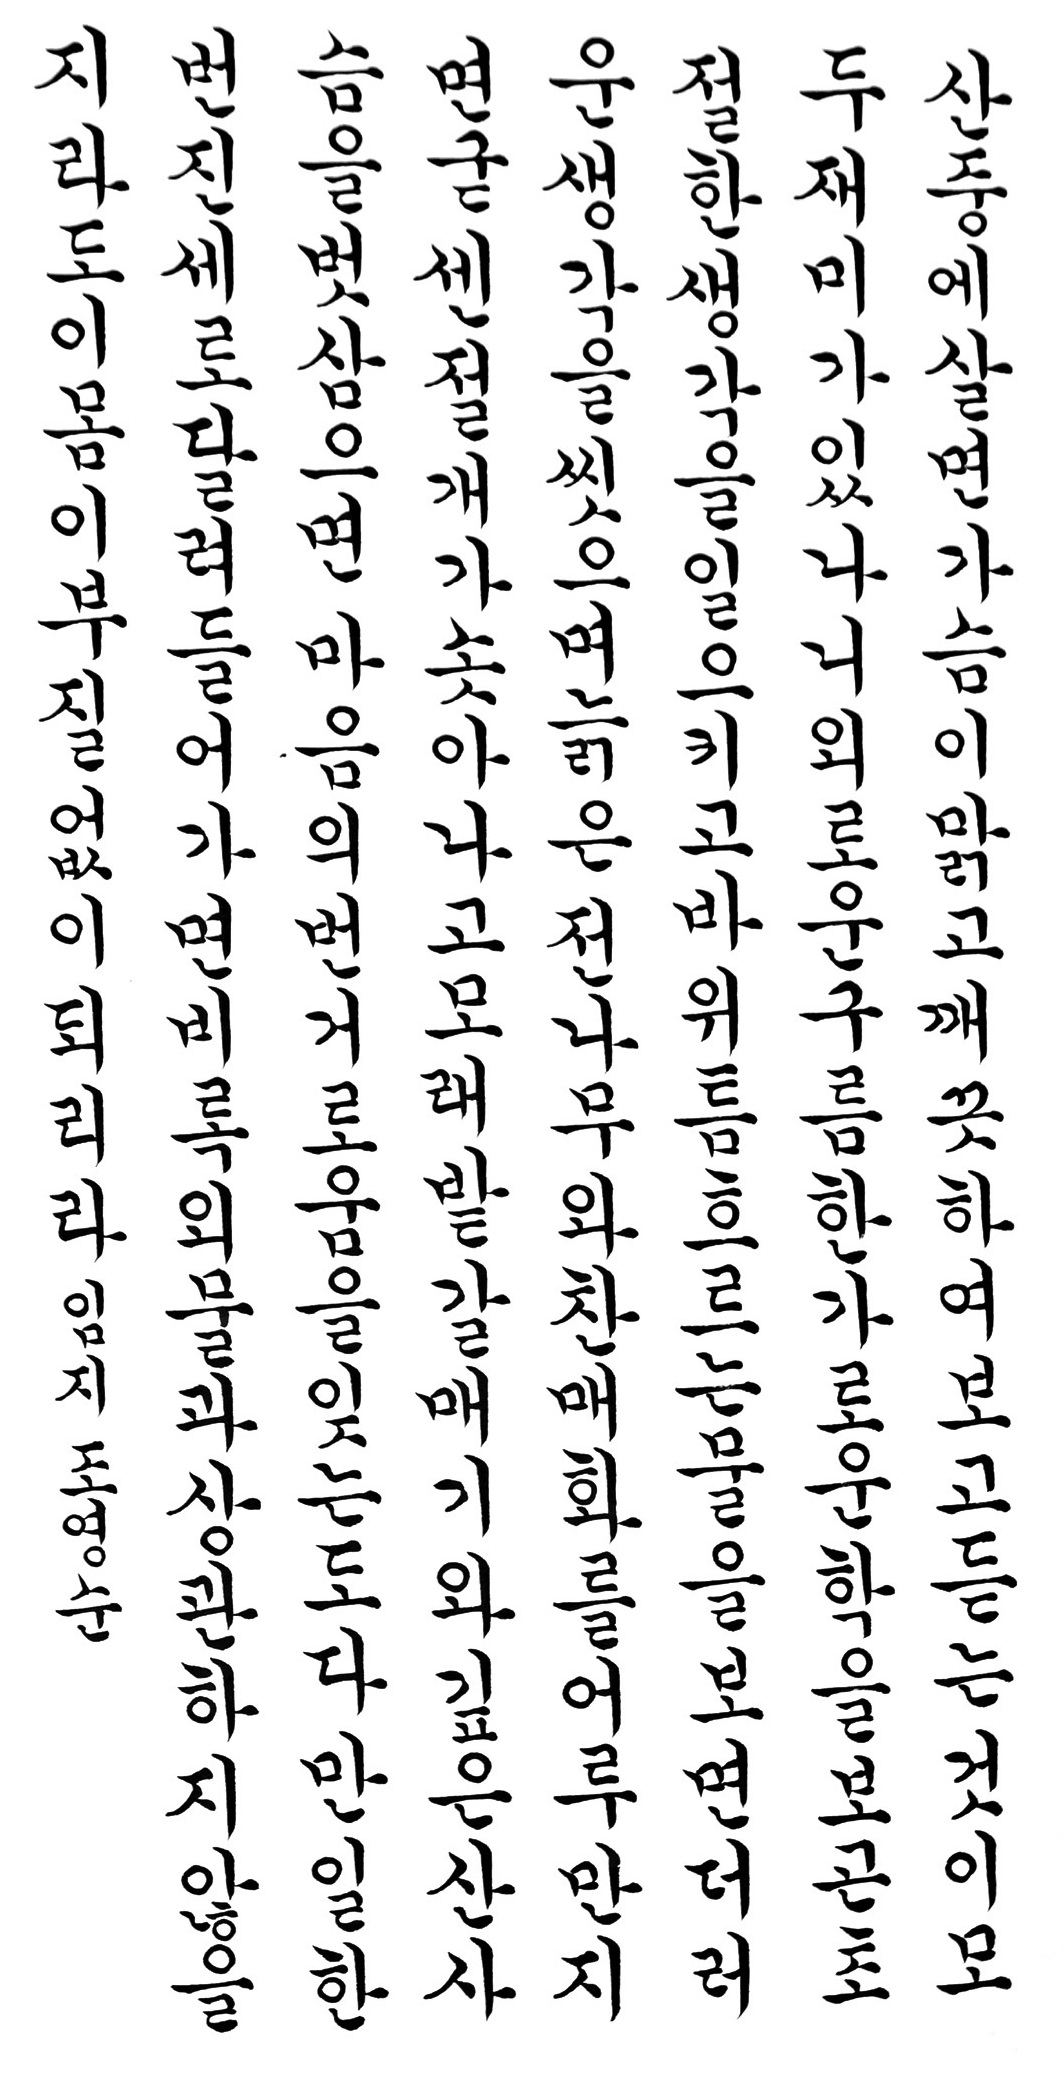 산중에살면가슴이맑고깨끗하여보고듣는것이모
두재미가있나니외로운구름한가로운학을보곤초
절한생각을일으키고바위틈흐르는물을보면더러
운생각을씻으며늙은전나무와찬매화를어루만지
면굳센절개가솟아나고모래밭갈매기와깊은산사
슴을벗삼으면마음의번거로움을잊는도다만일한
번진세로달려들어가면비록외물과상관하지않을
지라도이몸이부질없이되리라 임지 조영순